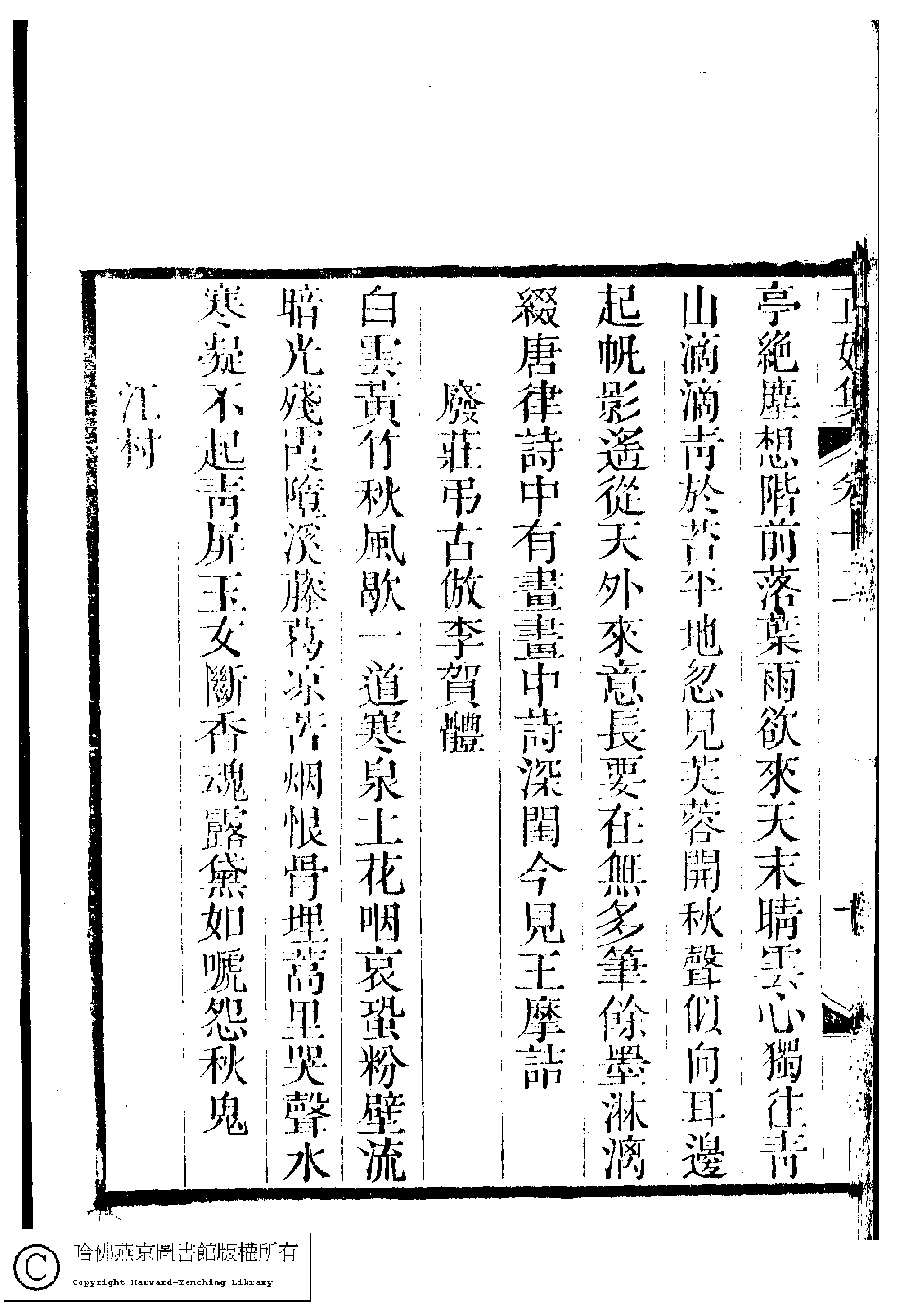 正始集 卷十二 十
亭絶塵想階前落葉雨欲來天末晴雲心獨往青
山滴滴青於苔平地忽見芙蓉開秋聲似向耳邊
起帆影遙從天外來意長要在無多筆餘墨淋漓
綴唐律詩中有畫畫中詩深閨今見王摩詰
廢莊弔古倣李賀體
白雲黃竹秋風歇一道寒泉土花咽哀蛩粉壁流
暗光殘霞墮溪藤葛凉苦烟恨骨埋蒿里哭聲水
寒凝不起青屏玉女斷香魂露黛如啼怨秋鬼
江村
哈佛燕京圖書館版權所有
Copyright Harvard-Yenching Library